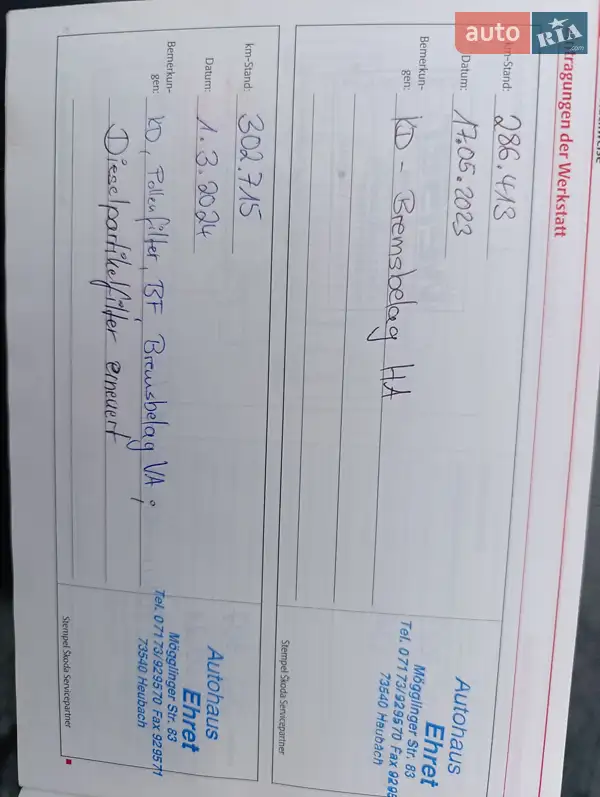 auto RIA .com
tragungen der Werkstatt
km-Stand: 286.413
Datum: 17.05.2023
Bemerkun-
gen: KD - Bremsbelag HA
Autohaus
Ehret
Mögglinger Str. 83
Tel. 07173/929570 Fax 929
73540 Heubach
Stempel Škoda Servicepartner
km-Stand: 302.715
Datum: 1.3.2024
Bemerkun-
gen: KD, Pollenfilter, BF, Bremsbelag VA,
Dieselpartikelfilter erneuert
Autohaus
Ehret
Mögglinger Str. 83
Tel. 07173/929570 Fax 929571
73540 Heubach
Stempel Škoda Servicepartner